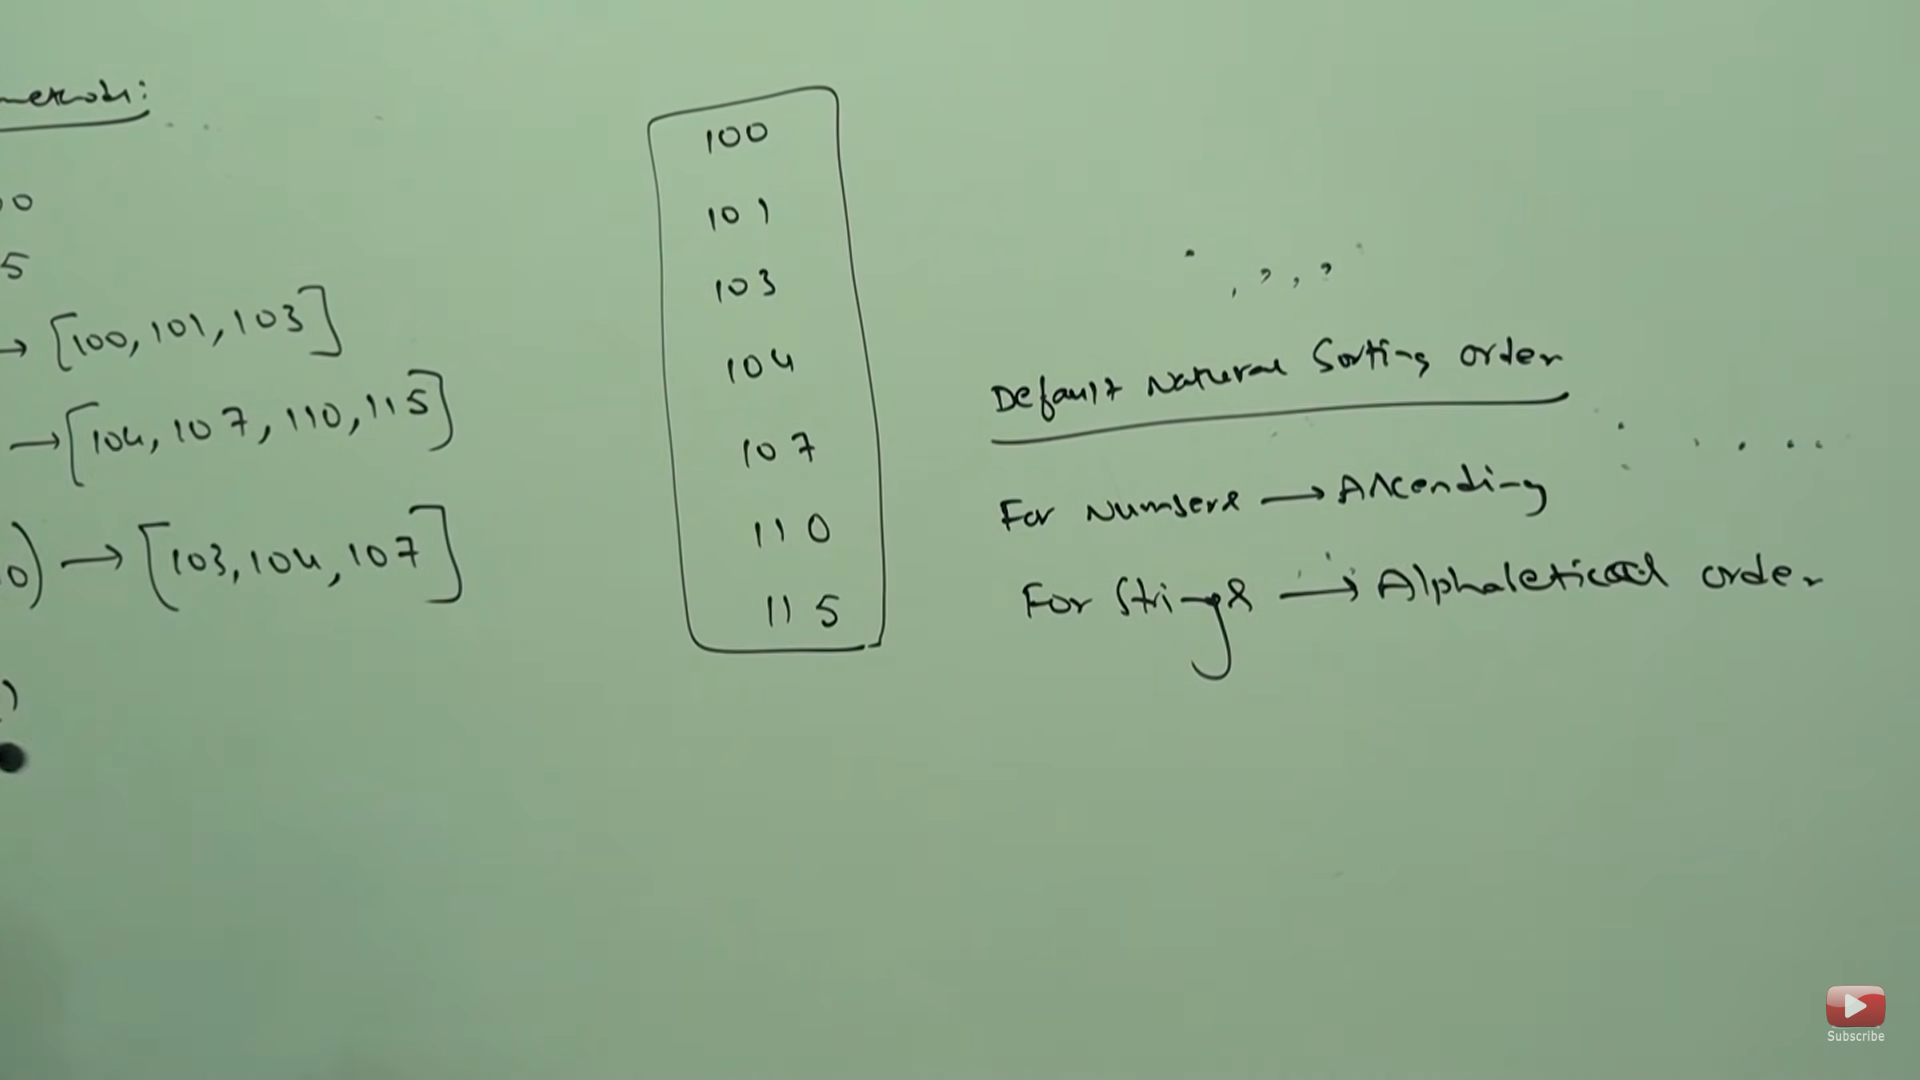 methods:
00
5
→ [100, 101, 103]
→ [104, 107, 110, 115]
0) → [103, 104, 107]
)
100
101
103
104
107
110
115
Default Natural Sorting order
For Numbers → Ascending
For Strings → Alphabetical order
Subscribe